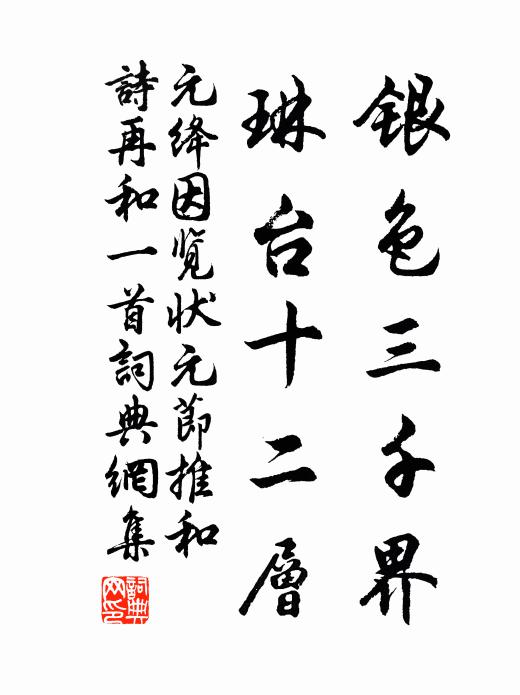 銀色三千界
琳台十二層
元绛因览状元節推和
詩再和一首詞典網集
詞典网印